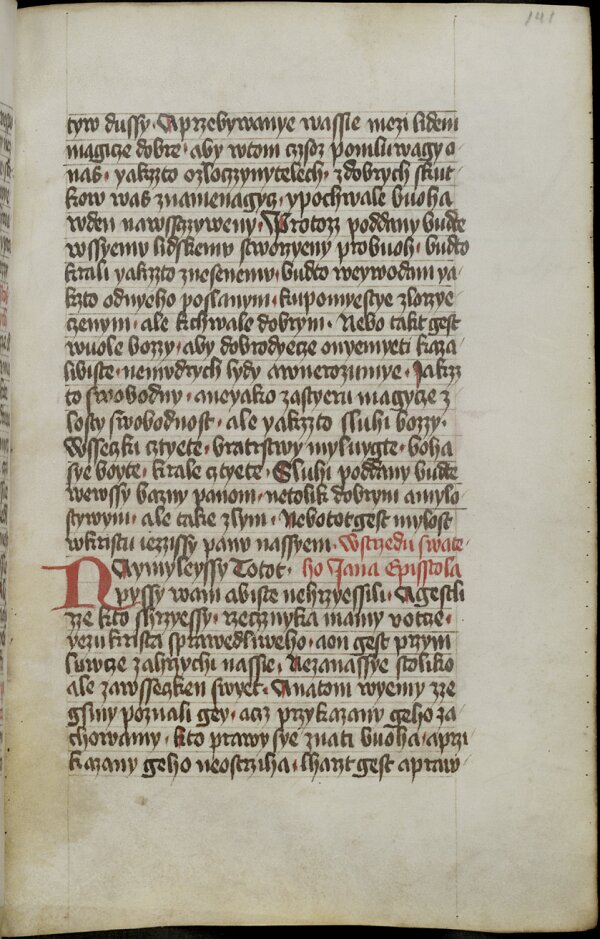 141
tyw dussy · Aprzebywanye wassie mezi lidem
magicze dobre · aby wtom czsoz pomluwagy o
nas · yakzto ozloczynytelech · zdobrych skut
kow was znamenagycz · ypochwale buoha
wden nawssczyweny · Protoz poddany budte
wssyemu lidskemu stworzyeny probuoh · budto
krali yakzto znesenemu · budto weywodam ya
kzto odnyeho poslanym · kupomyestye zlorzye
czenym · ale kchwale dobrym · Nebo takt gest
wuole bozzy · aby dobrodyecze onyemyeti kaza
libiste · nemudrych lydy awnerozumye · Jakzz
to swobodny · aneyako zastyeru magycze z
losty swobodnost · ale yakzto sluhi bozzy ·
Wsseczki cztyete · bratrstwy myluygte · boha
sye boyte · krale cztyete · Sluhi poddany budte
wewssy bazny panom · netolik dobrym amylo
stywym · ale take zlym · Nebotot gest mylost
wkristu iezzissy panu nassyem · Wstrzedu swate
ho Jana Episstola
Naymyleyssy Totot ·
pyssy wam abiste nehrzyessili · Agestli
zze kto shrzyessy · rzecznyka mamy votcze ·
yezukrista sprawedliweho · aon gest przym
luwcze zahrzychi nassie · Nezanassye stoliko
ale zawsseczken swyet · Anatom wyemy zze
gsmy poznali gey · acz przykazany geho za
chowamy · kto prawy sye znati buoha · aprzi
kazany geho neostrziha · lharzt gest apraw